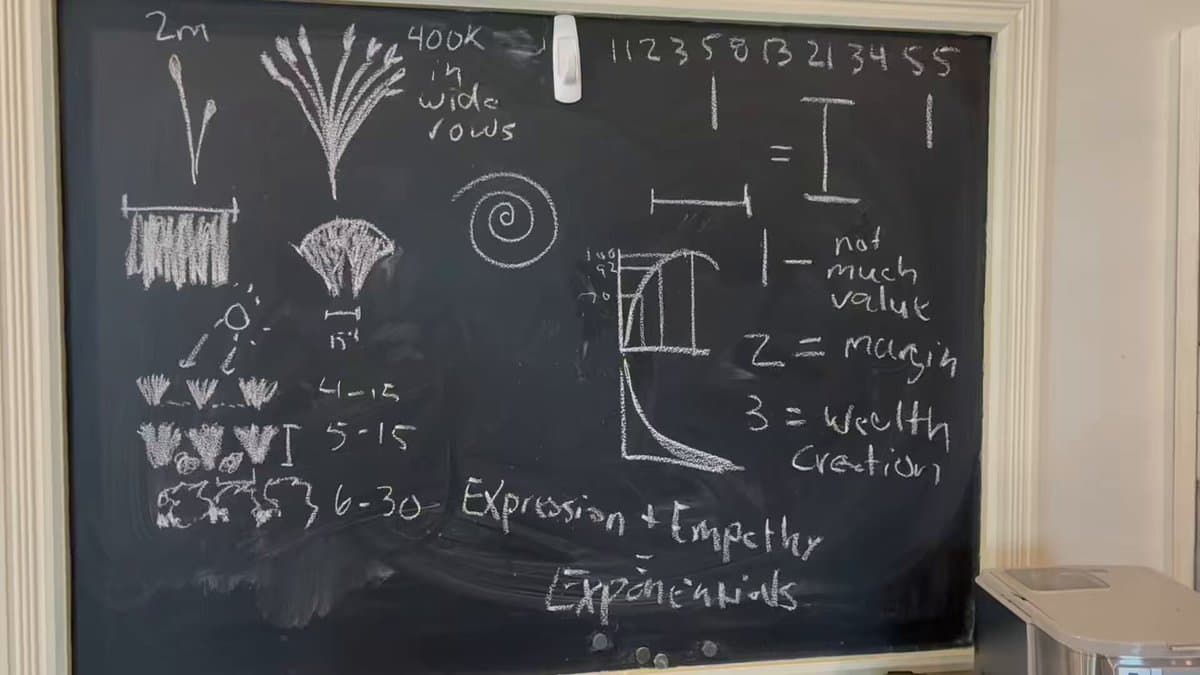 2m
400K
in
wide
rows
1 1 2 3 5 8 13 21 34 55
1
= I
1
15"
100
92
70
1 - not
much
value
2 = margin
3 = Wealth
Creation
4-15
5-15
6-30- Expression + Empathy
=
Exponentials